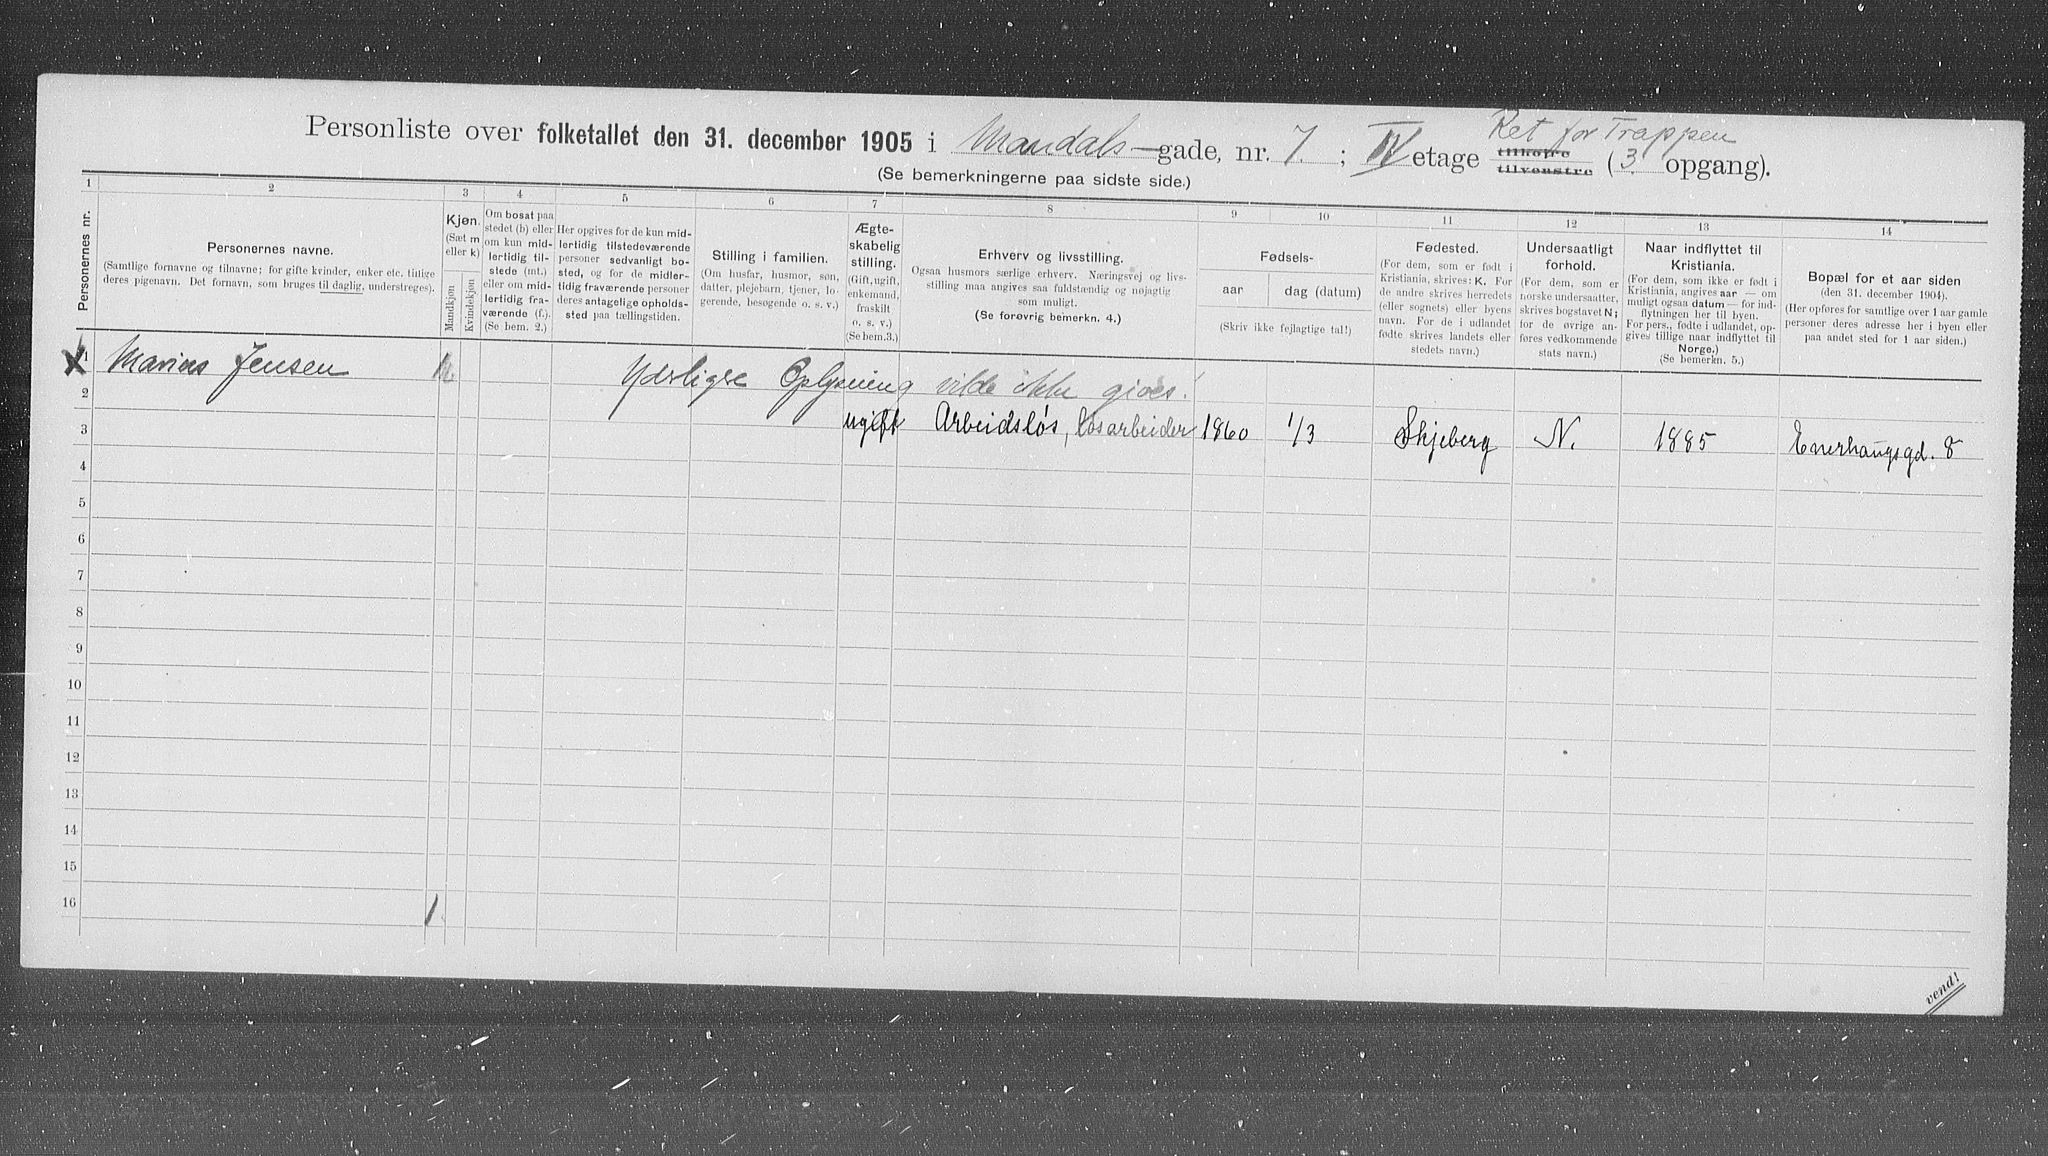 Ret for Trappen
Personliste over folketallet den 31. december 1905 i Mandals-gade, nr. 7. ; IV etage tilhøire tilvenstre (3. opgang).
(Se bemerkningerne paa sidste side.)
1 2 3 4 5 6 7 8 9 10 11 12 13 14
Personernes nr.
Personernes navne.
(Samtlige fornavne og tilnavne; for gifte kvinder, enker etc. tillige
deres pigenavn. Det fornavn, som bruges til daglig, understreges).
Kjøn.
(Sæt m
eller k)
Mandkjøn
Kvindekjøn
Om bosat paa
stedet (b) eller
om kun mid-
lertidig til-
stede (mt.)
eller om mid-
lertidig fra-
værende (f.).
(Se bem. 2.)
Her opgives for de kun mid-
lertidig tilstedeværende
personer sedvanligt bo-
sted, og for de midler-
tidig fraværende personer
deres antagelige opholds-
sted paa tællingstiden.
Stilling i familien.
(Om husfar, husmor, søn,
datter, plejebarn, tjener, lo-
gerende, besøgende o. s. v.)
Ægte-
skabelig
stilling.
(Gift, ugift,
enkemand,
fraskilt
o. s. v.)
(Se bem. 3.)
Erhverv og livsstilling.
Ogsaa husmors særlige erhverv. Næringsvej og livs-
stilling maa angives saa fuldstændig og nøjagtig
som muligt.
(Se forøvrig bemerkn. 4.)
Fødsels-
aar
dag (datum)
(Skriv ikke fejlagtige tal!)
Fødested.
(For dem, som er født i
Kristiania, skrives: K. For
de andre skrives herredets
(eller sognets) eller byens
navn. For de i udlandet
fødte skrives landets eller
stedets navn.)
Undersaatligt
forhold.
(For dem, som er
norske undersaatter,
skrives bogstavet N;
for de øvrige an-
føres vedkommende
stats navn.)
Naar indflyttet til
Kristiania.
(For dem, som ikke er født i
Kristiania, angives aar — om
muligt ogsaa datum — for ind-
flytningen her til byen.
For pers., fødte i udlandet, op-
gives tillige naar indflyttet til
Norge.)
(Se bemerkn. 5.)
Bopæl for et aar siden
(den 31. december 1904).
(Her opføres for samtlige over 1 aar gamle
personer deres adresse her i byen eller
paa andet sted for 1 aar siden.)
X 1 Marius Jensen Yderligere Oplysning vilde ikke gives!
2
3 ugift Arbeidsløs, løsarbeider 1860 1/3 Skjeberg N. 1885 Enerhaugsgd. 8
4
5
6
7
8
9
10
11
12
13
14
15
16 1
vend!